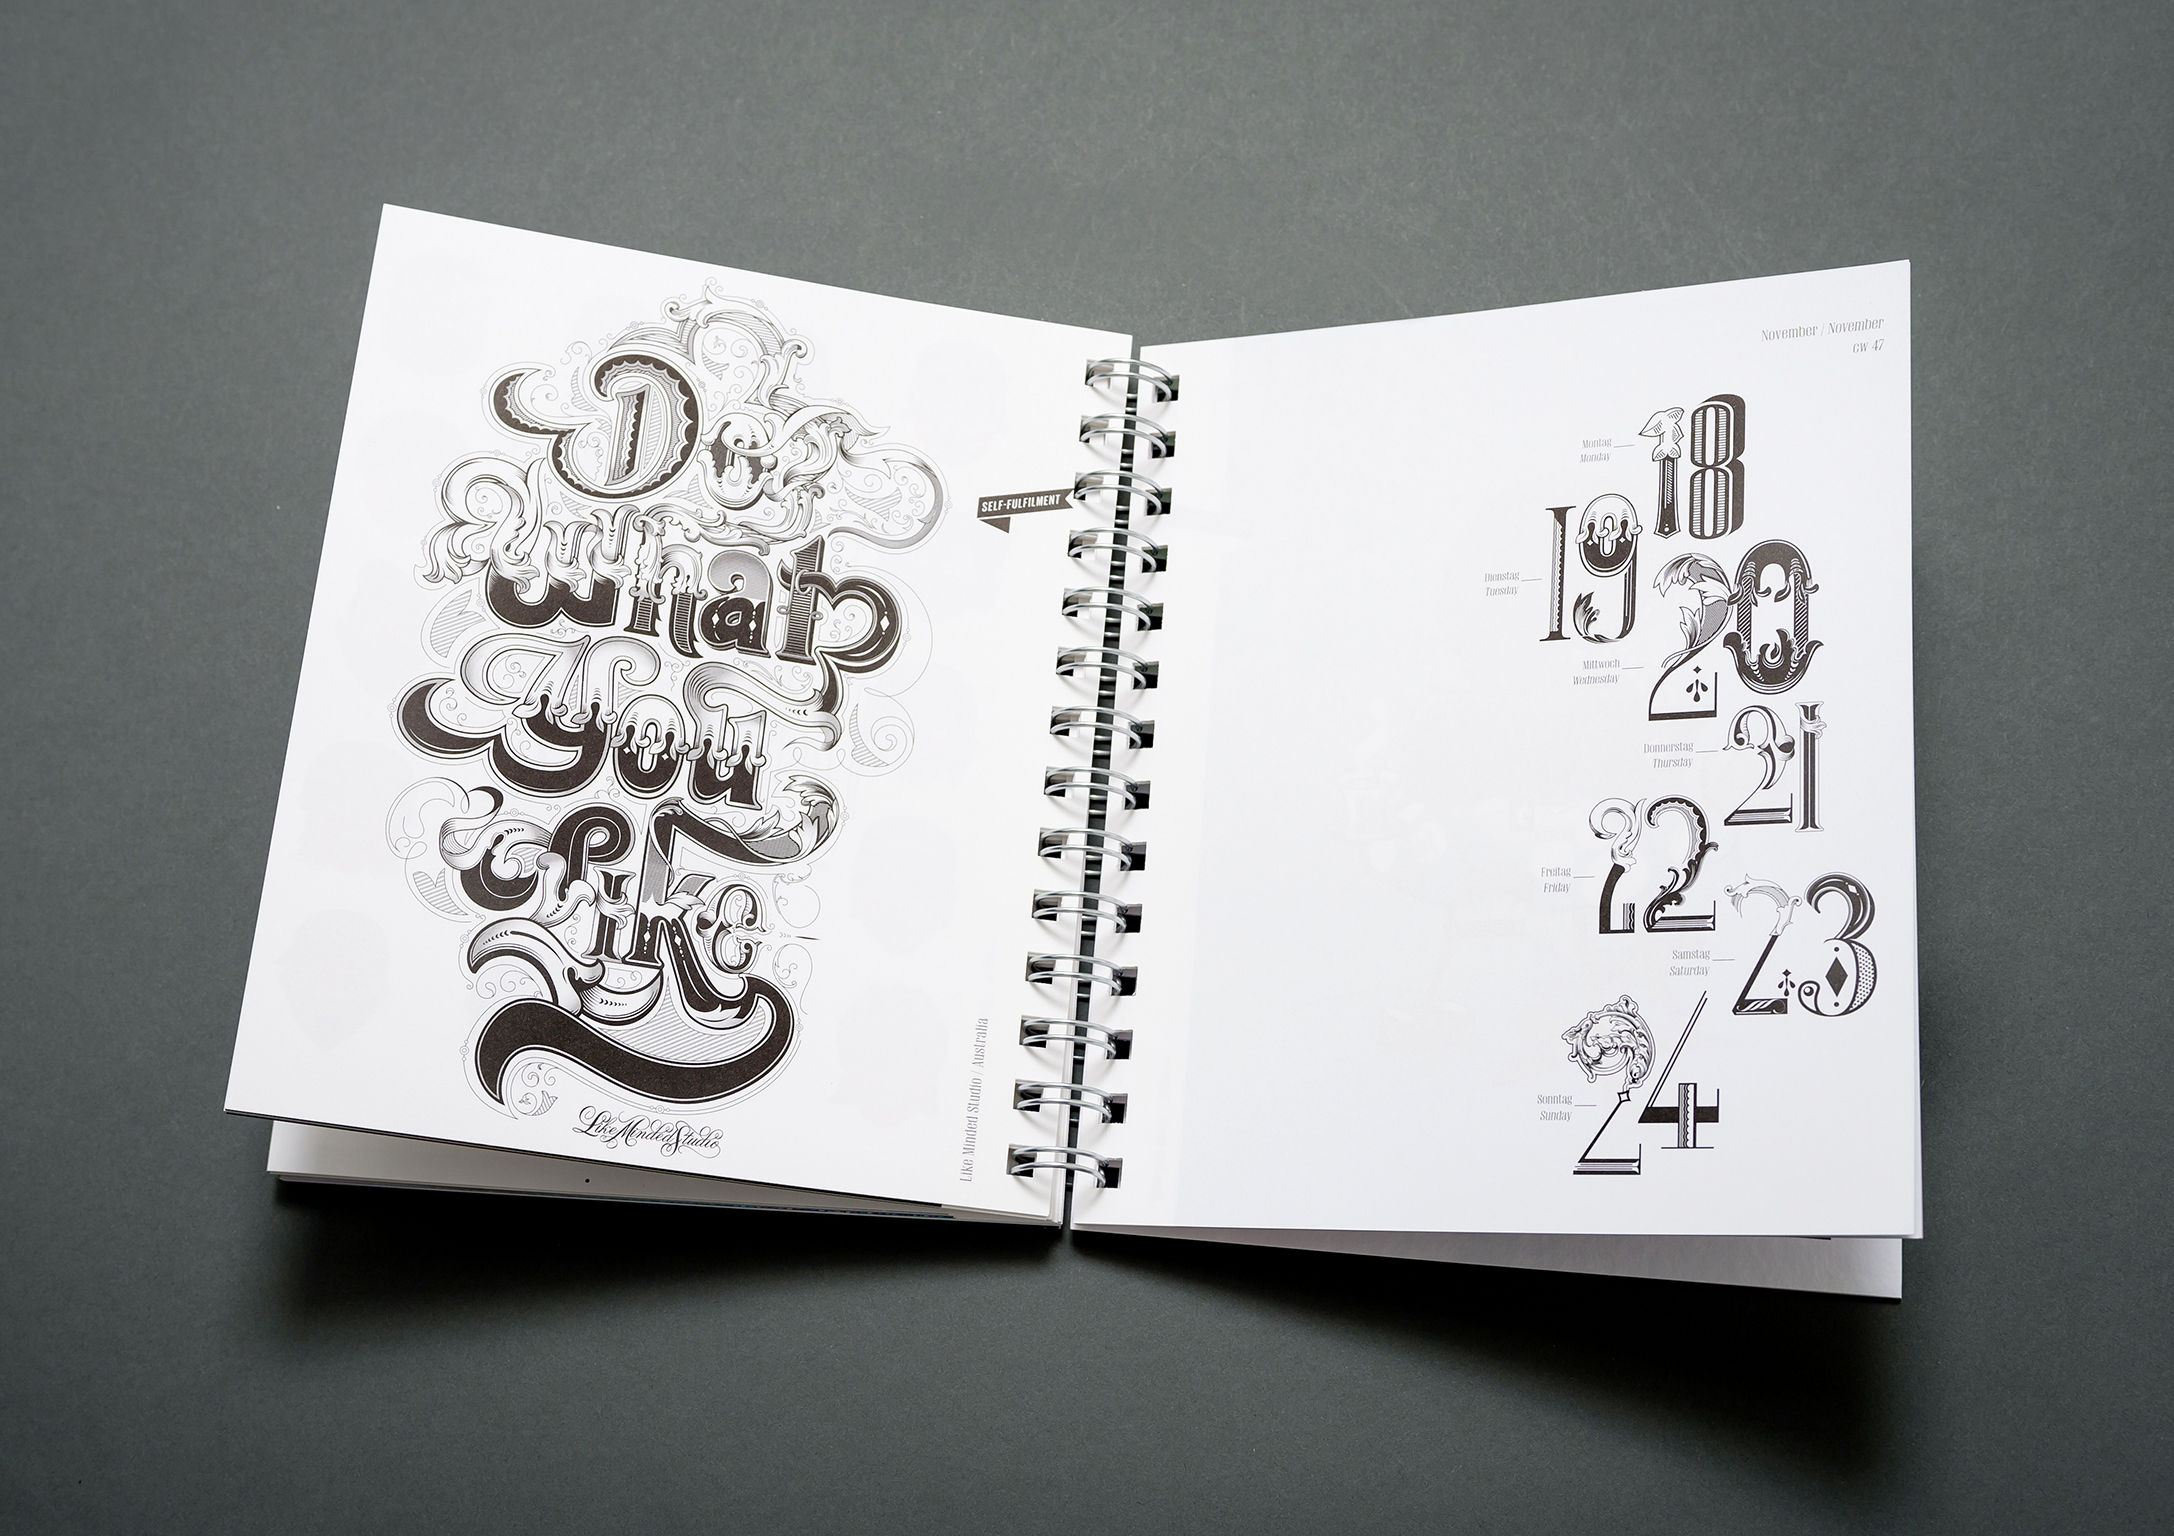 Do
What
You
Like
LikeMindedStudio
SELF-FULFILMENT
Like Minded Studio / Australia
November / November
CW 47
Montag
Monday
18
Dienstag
Tuesday
19
Mittwoch
Wednesday
20
Donnerstag
Thursday
21
Freitag
Friday
22
Samstag
Saturday
23
Sonntag
Sunday
24